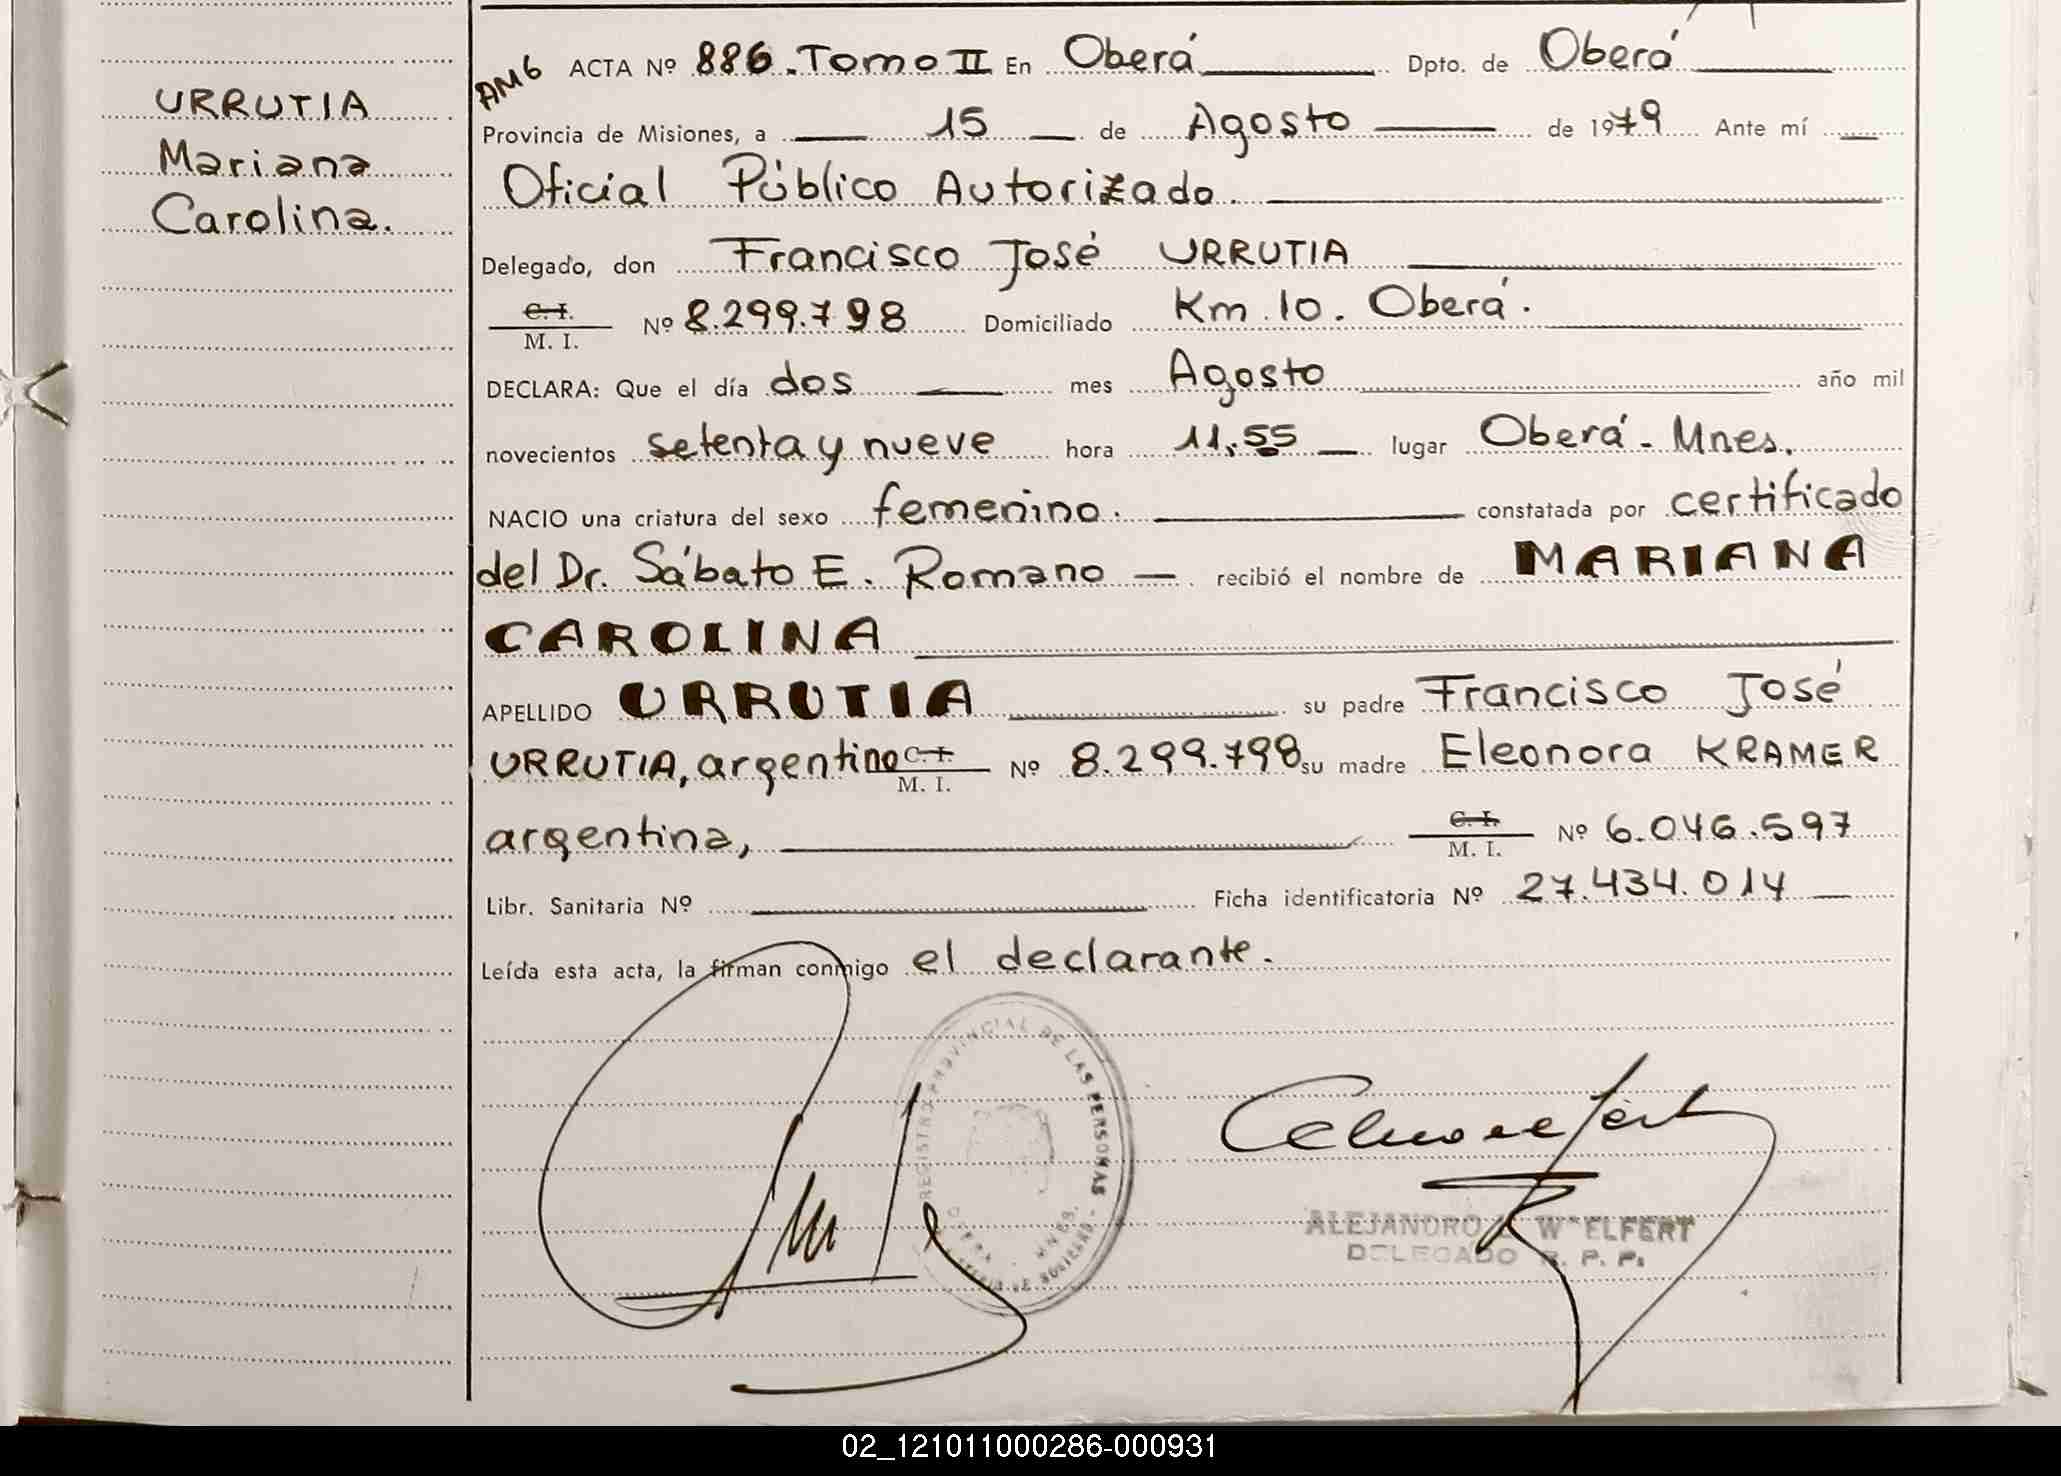 URRUTIA
Mariana
Carolina.
AMG ACTA Nº 886. Tomo II En Oberá Dpto. de Oberá
Provincia de Misiones, a 15 de Agosto de 1979 Ante mí
Oficial Público Autorizado.
Delegado, don Francisco José URRUTIA
C. I.
M. I. Nº 8.299.798 Domiciliado Km. 10. Oberá.
DECLARA: Que el día dos mes Agosto año mil
novecientos setenta y nueve hora 11,55 lugar Oberá - Mnes.
NACIO una criatura del sexo femenino. constatada por certificado
del Dr. Sábato E. Romano recibió el nombre de MARIANA
CAROLINA
APELLIDO URRUTIA su padre Francisco José
URRUTIA, argentino C. I. Nº 8.299.798 su madre Eleonora KRAMER
M. I.
argentina, C. I. Nº 6.046.597
M. I.
Libr. Sanitaria Nº Ficha identificatoria Nº 27.434.014
Leída esta acta, la firman conmigo el declarante.
REGISTRO PROVINCIAL DE LAS PERSONAS
ALEJANDRO
DELEGADO R. P. P.
02_121011000286-000931